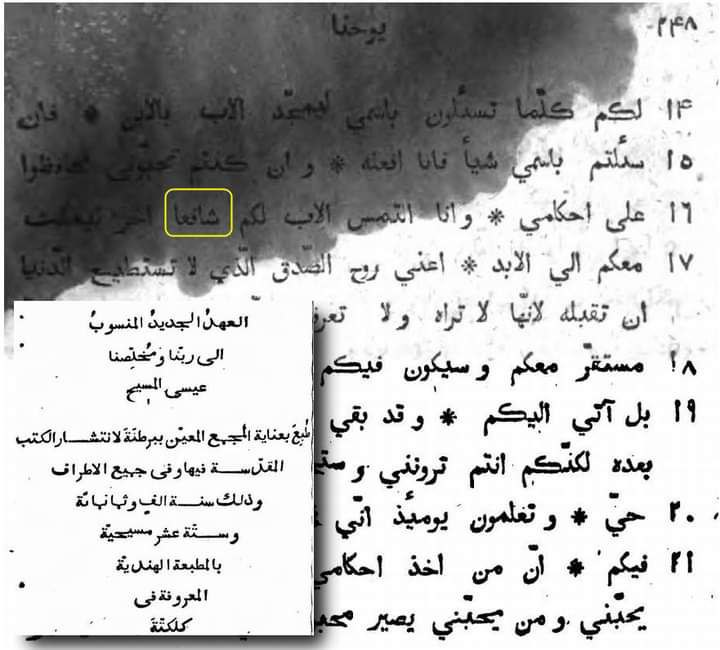 ۲۴۸ يوحنا
١۴ لكم كلّما تسئلون باسمي ليمجّد الاب بالابن * فان
١٥ سئلتم باسمي شيأ فانا افعله * و ان كنتم تحبّوني فحافظوا
١٦ على احكامي * وانا التمس الاب لكم شافعا اخر ليمكث
١٧ معكم الي الابد * اعني روح الصّدق الّذي لا تستطيع الدّنيا
ان تقبله لانّها لا تراه ولا
١٨ مستقرّ معكم وسيكون فيكم
١٩ بل آتي اليكم * و قد بقي
بعده لكنّكم انتم ترونني
٢٠ حيّ * و تعلمون يوميذ انّي
٢١ فيكم * انّ من اخذ احكامي
يحبّني ومن يحبّني يصير
العهد الجديد المنسوب
الى ربّنا ومُخلّصنا
عيسى المسيح
طُبِعَ بعناية المجمع المعيّن ببرطنة لانتشار الكتب
المقدّسة فيها وفى جميع الاطراف
وذلك سنة الف وثمانمائة
وستّة عشر مسيحيّة
بالمطبعة الهنديّة
المعروفة فى
كلكتّة